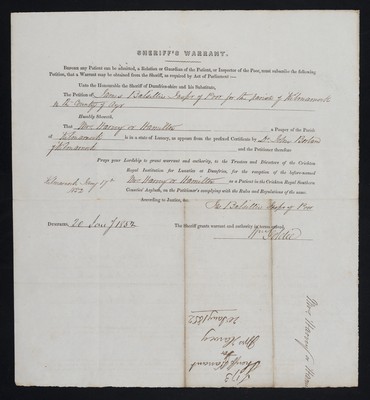 SHERIFF'S WARRANT.
BEFORE any Patient can be admitted, a Relation or Guardian of the Patient, or Inspector of the Poor, must subscribe the following
Petition, that a Warrant may be obtained from the Sheriff, as required by Act of Parliament :—
Unto the Honourable the Sheriff of Dumfries-shire and his Substitute,
The Petition of James Inspr of Poor for the parish of Kilmarnock
in the County of Ayr
Humbly Sheweth,
That Mrs Harvey or Hamilton a Pauper of the Parish
of Kilmarnock is in a state of Lunacy, as appears from the prefixed Certificate by Dr John
of Kilmarnock and the Petitioner therefor
Prays your Lordship to grant warrant and authority, to the Trustees and Directors of the Crichton
Royal Institution for Lunatics at Dumfries, for the reception of the before-named
Kilmarnock Jany 19th Mrs Harvey or Hamilton as a Patient in the Crichton Royal Southern
1852 Counties' Asylum, on the Petitioner's complying with the Rules and Regulations of the same.
According to Justice, &c.
Inspr of Poor
DUMFRIES, 20 Jany 1852 The Sheriff grants warrant and authority in terms
173
Sheriff's Warrant
for
Mrs Harvey
20 Jany 1852
Mrs Harvey or